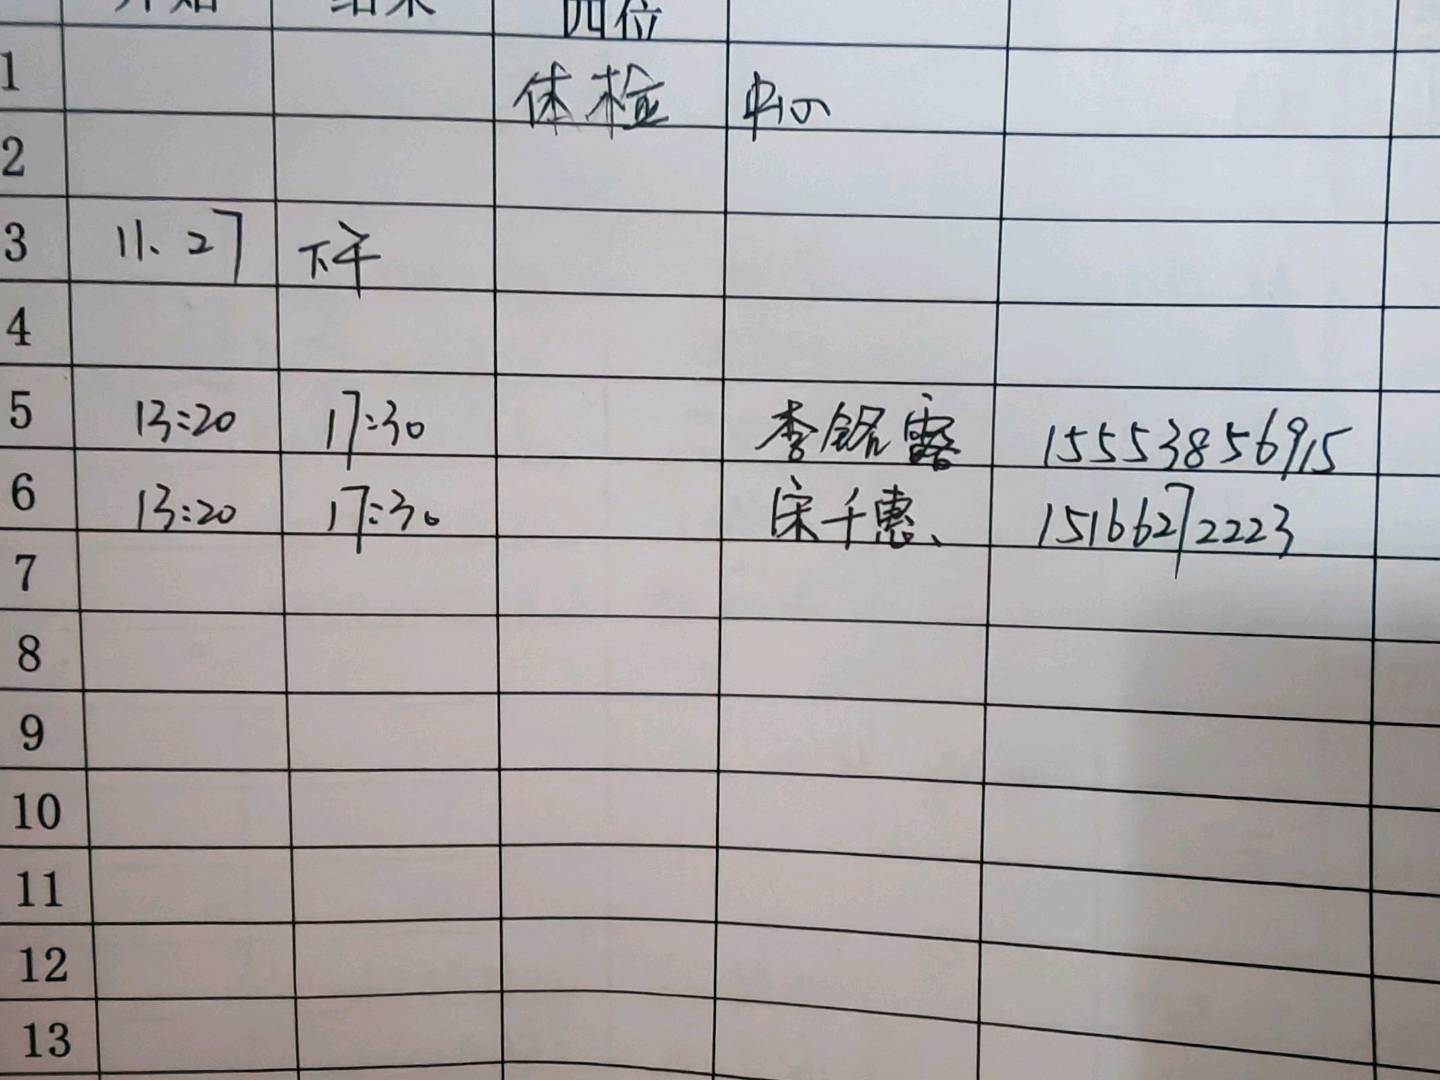 开始 结束 四位
1 体检 中心
2
3 11、27 下午
4
5 13:20 17:30 李铭露 15553856915
6 13:20 17:30 宋千惠、 15166272223
7
8
9
10
11
12
13